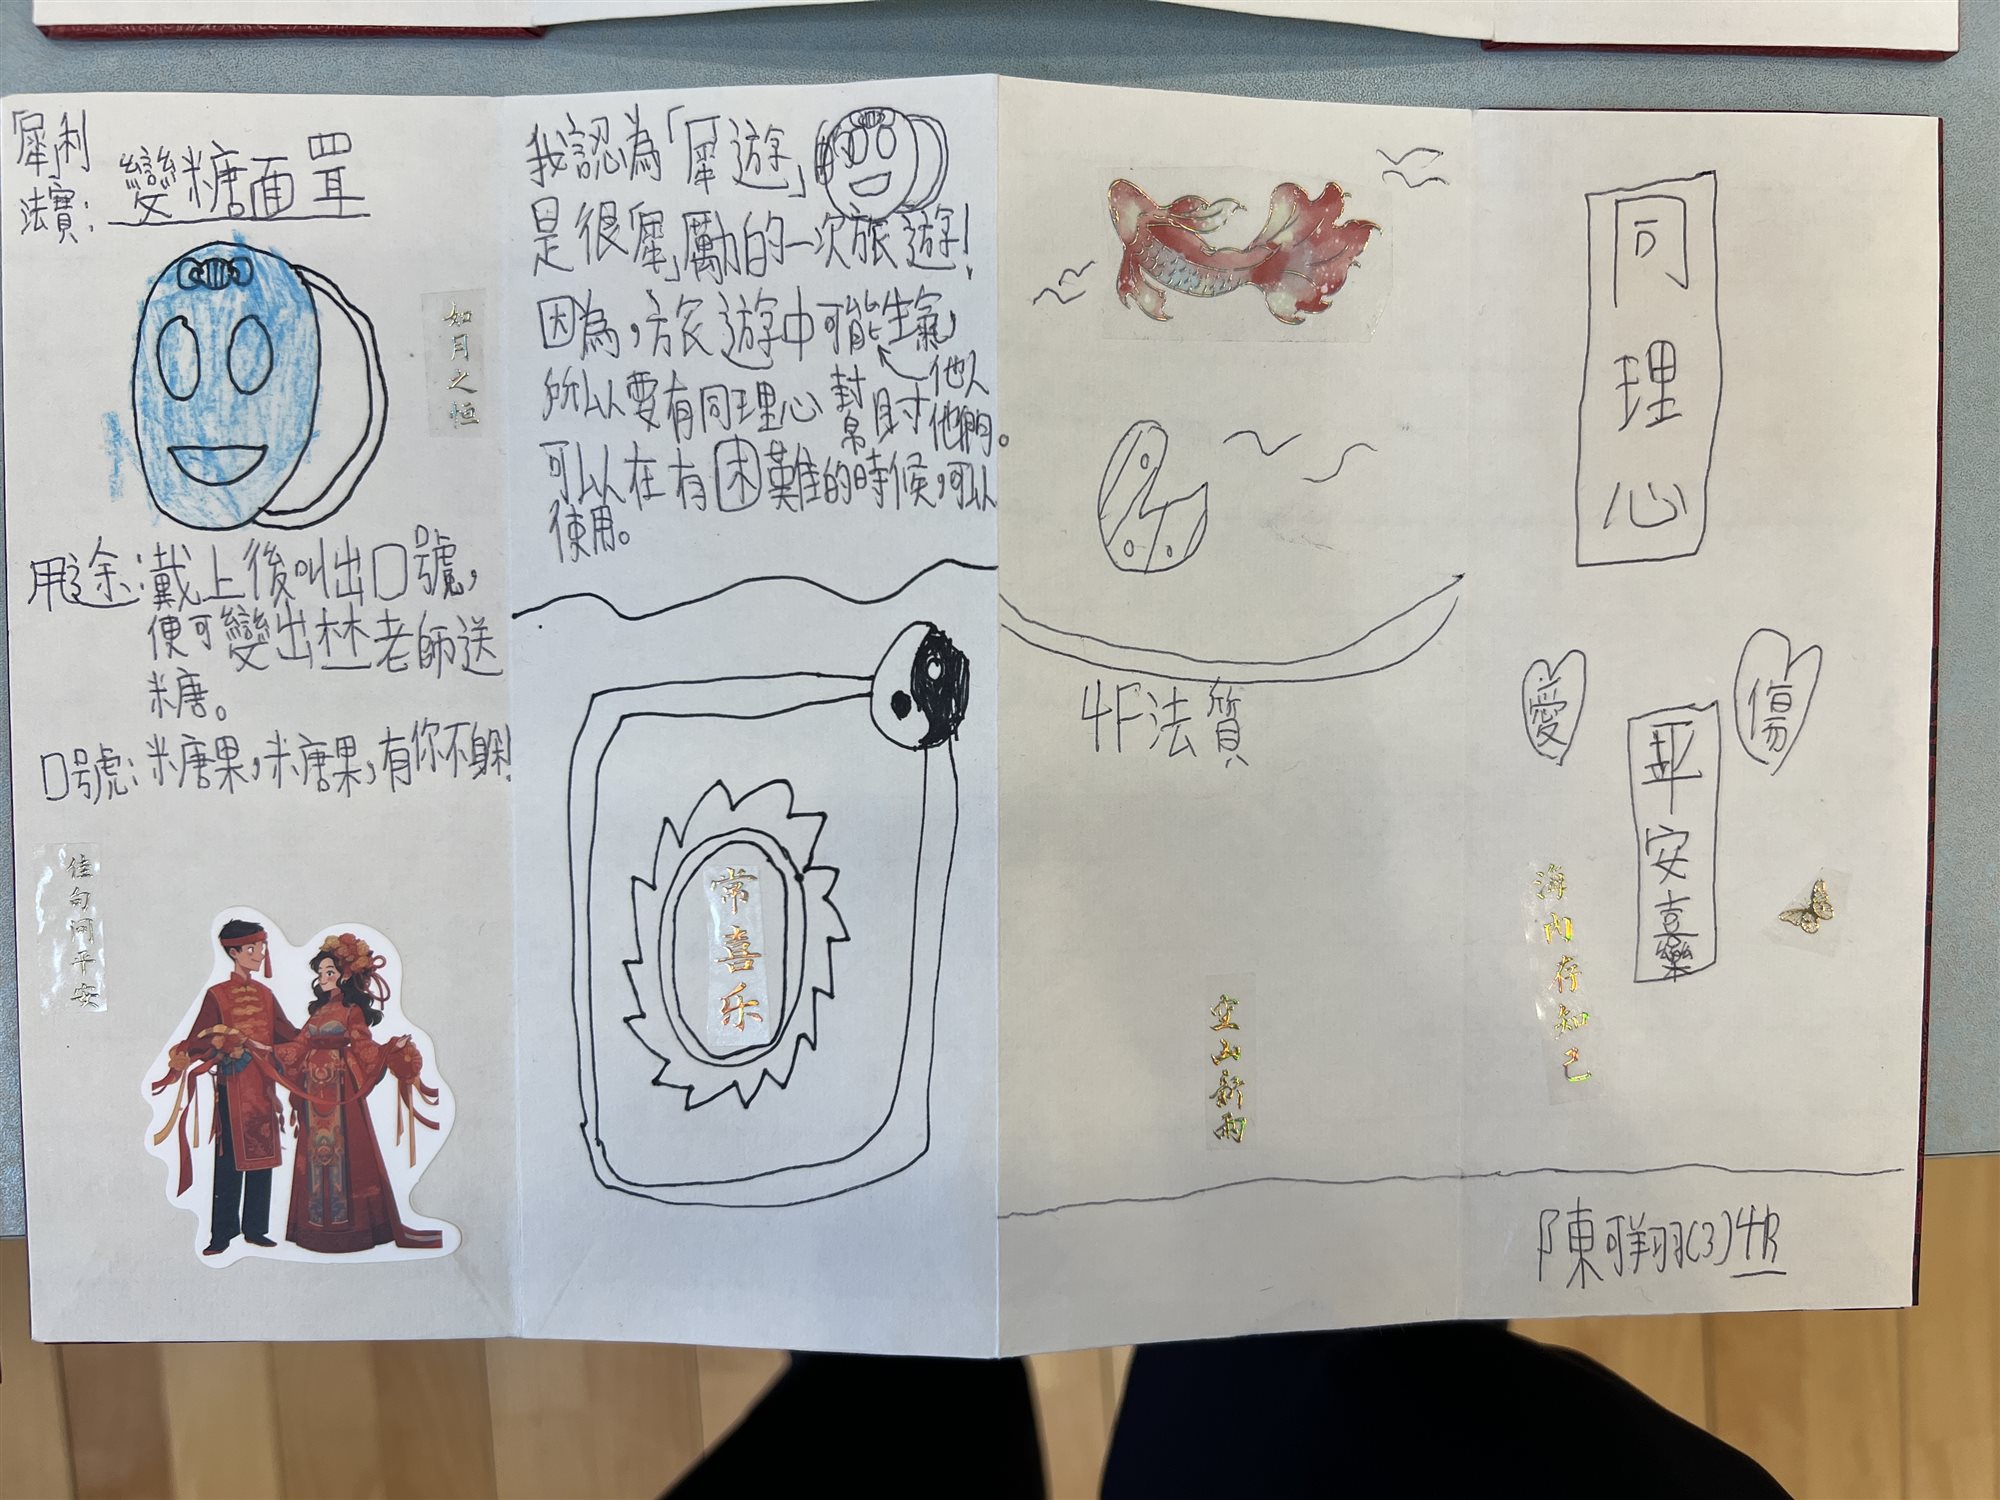 「犀」利
法寶：
變糖面罩
如月之恒
用途：戴上後叫出口號，
便可變出林老師送
糖。
口號：糖果，糖果，有你不躲！
佳句问平安
我認為「犀遊」
是很「犀」厲的一次旅遊！
因為，旅遊中可能生氣，
他人
所以要有同理心幫
他們。
可以在有困難的時候，可以
使用。
常喜乐
4F法質
空山新雨
同理心
愛
傷
平安喜樂
海内存知己
陳可翔(3)4R